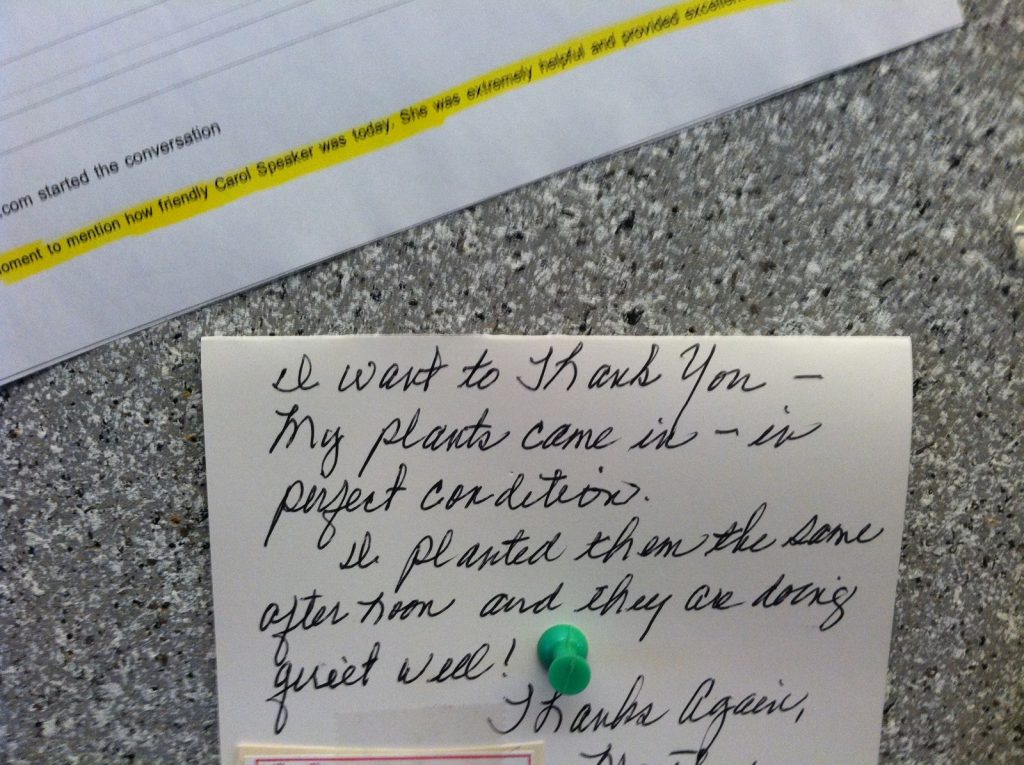 .com started the conversation
oment to mention how friendly Carol Speaker was today. She was extremely helpful and provided excellen
I want to Thank You –
My plants came in – in
perfect condition.
I planted them the same
after noon and they are doing
quiet well!
Thanks Again,